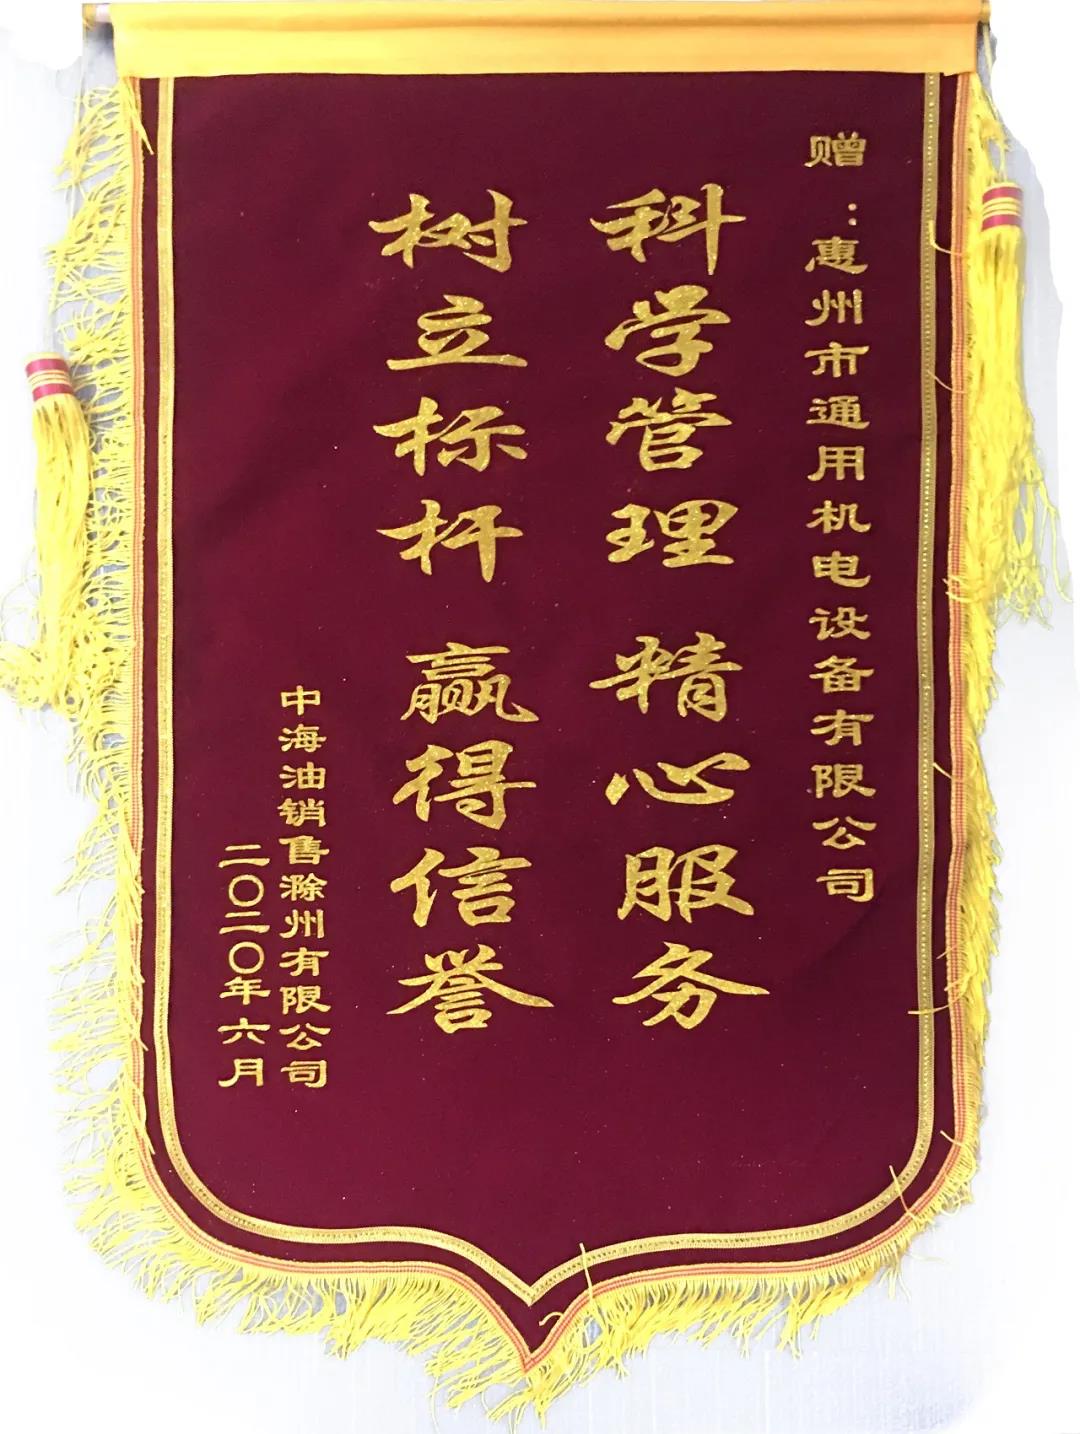 赠:惠州市通用机电设备有限公司
科学管理 精心服务
树立标杆 赢得信誉
中海油销售滁州有限公司
二〇二〇年六月